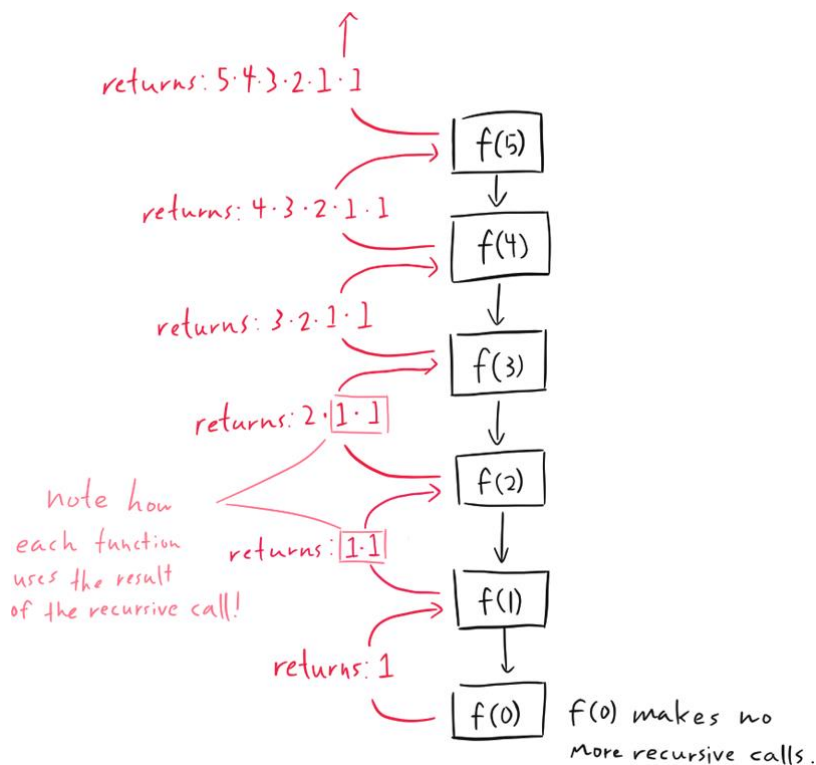 returns: 5·4·3·2·1·1
f(5)
returns: 4·3·2·1·1
f(4)
returns: 3·2·1·1
f(3)
returns: 2·1·1
f(2)
note how
each function
uses the result
of the recursive call!
returns: 1·1
f(1)
returns: 1
f(0)
f(0) makes no
more recursive calls.